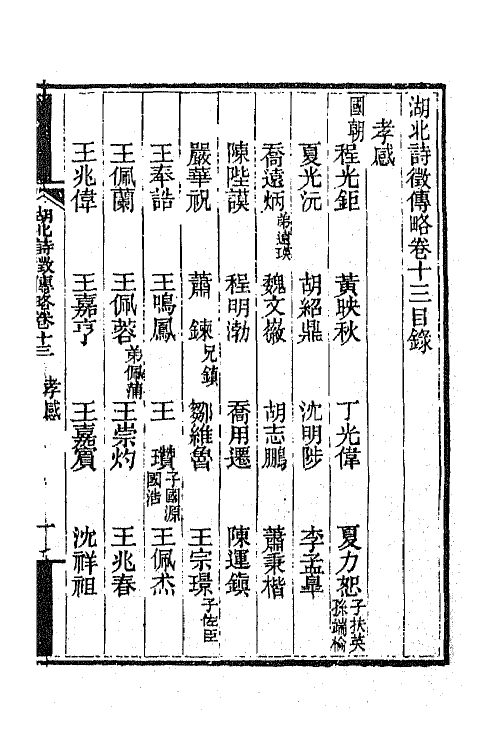 湖北詩徵傳略卷十三目錄
孝感
國朝 程光鉅 黃映秋 丁光偉 夏力恕 子扶英 孫端榆
夏光沅 胡紹鼎 沈明陟 李孟臯
喬遠炳 弟遠瑛 魏文嶽 胡志鵬 蕭秉楷
陳陛謨 程明渤 喬用遷 陳運鎮
嚴華祝 蕭鍊 兄鎮 鄒維魯 王宗璟 子佐臣
王奉誥 王鳴鳳 王瓚 子國源 國浩 王佩杰
王佩蘭 王佩蓉 弟佩蒲 王崇灼 王兆春
王兆偉 王嘉亨 王嘉賓 沈祥祖
湖北詩徵傳略卷十三 孝感